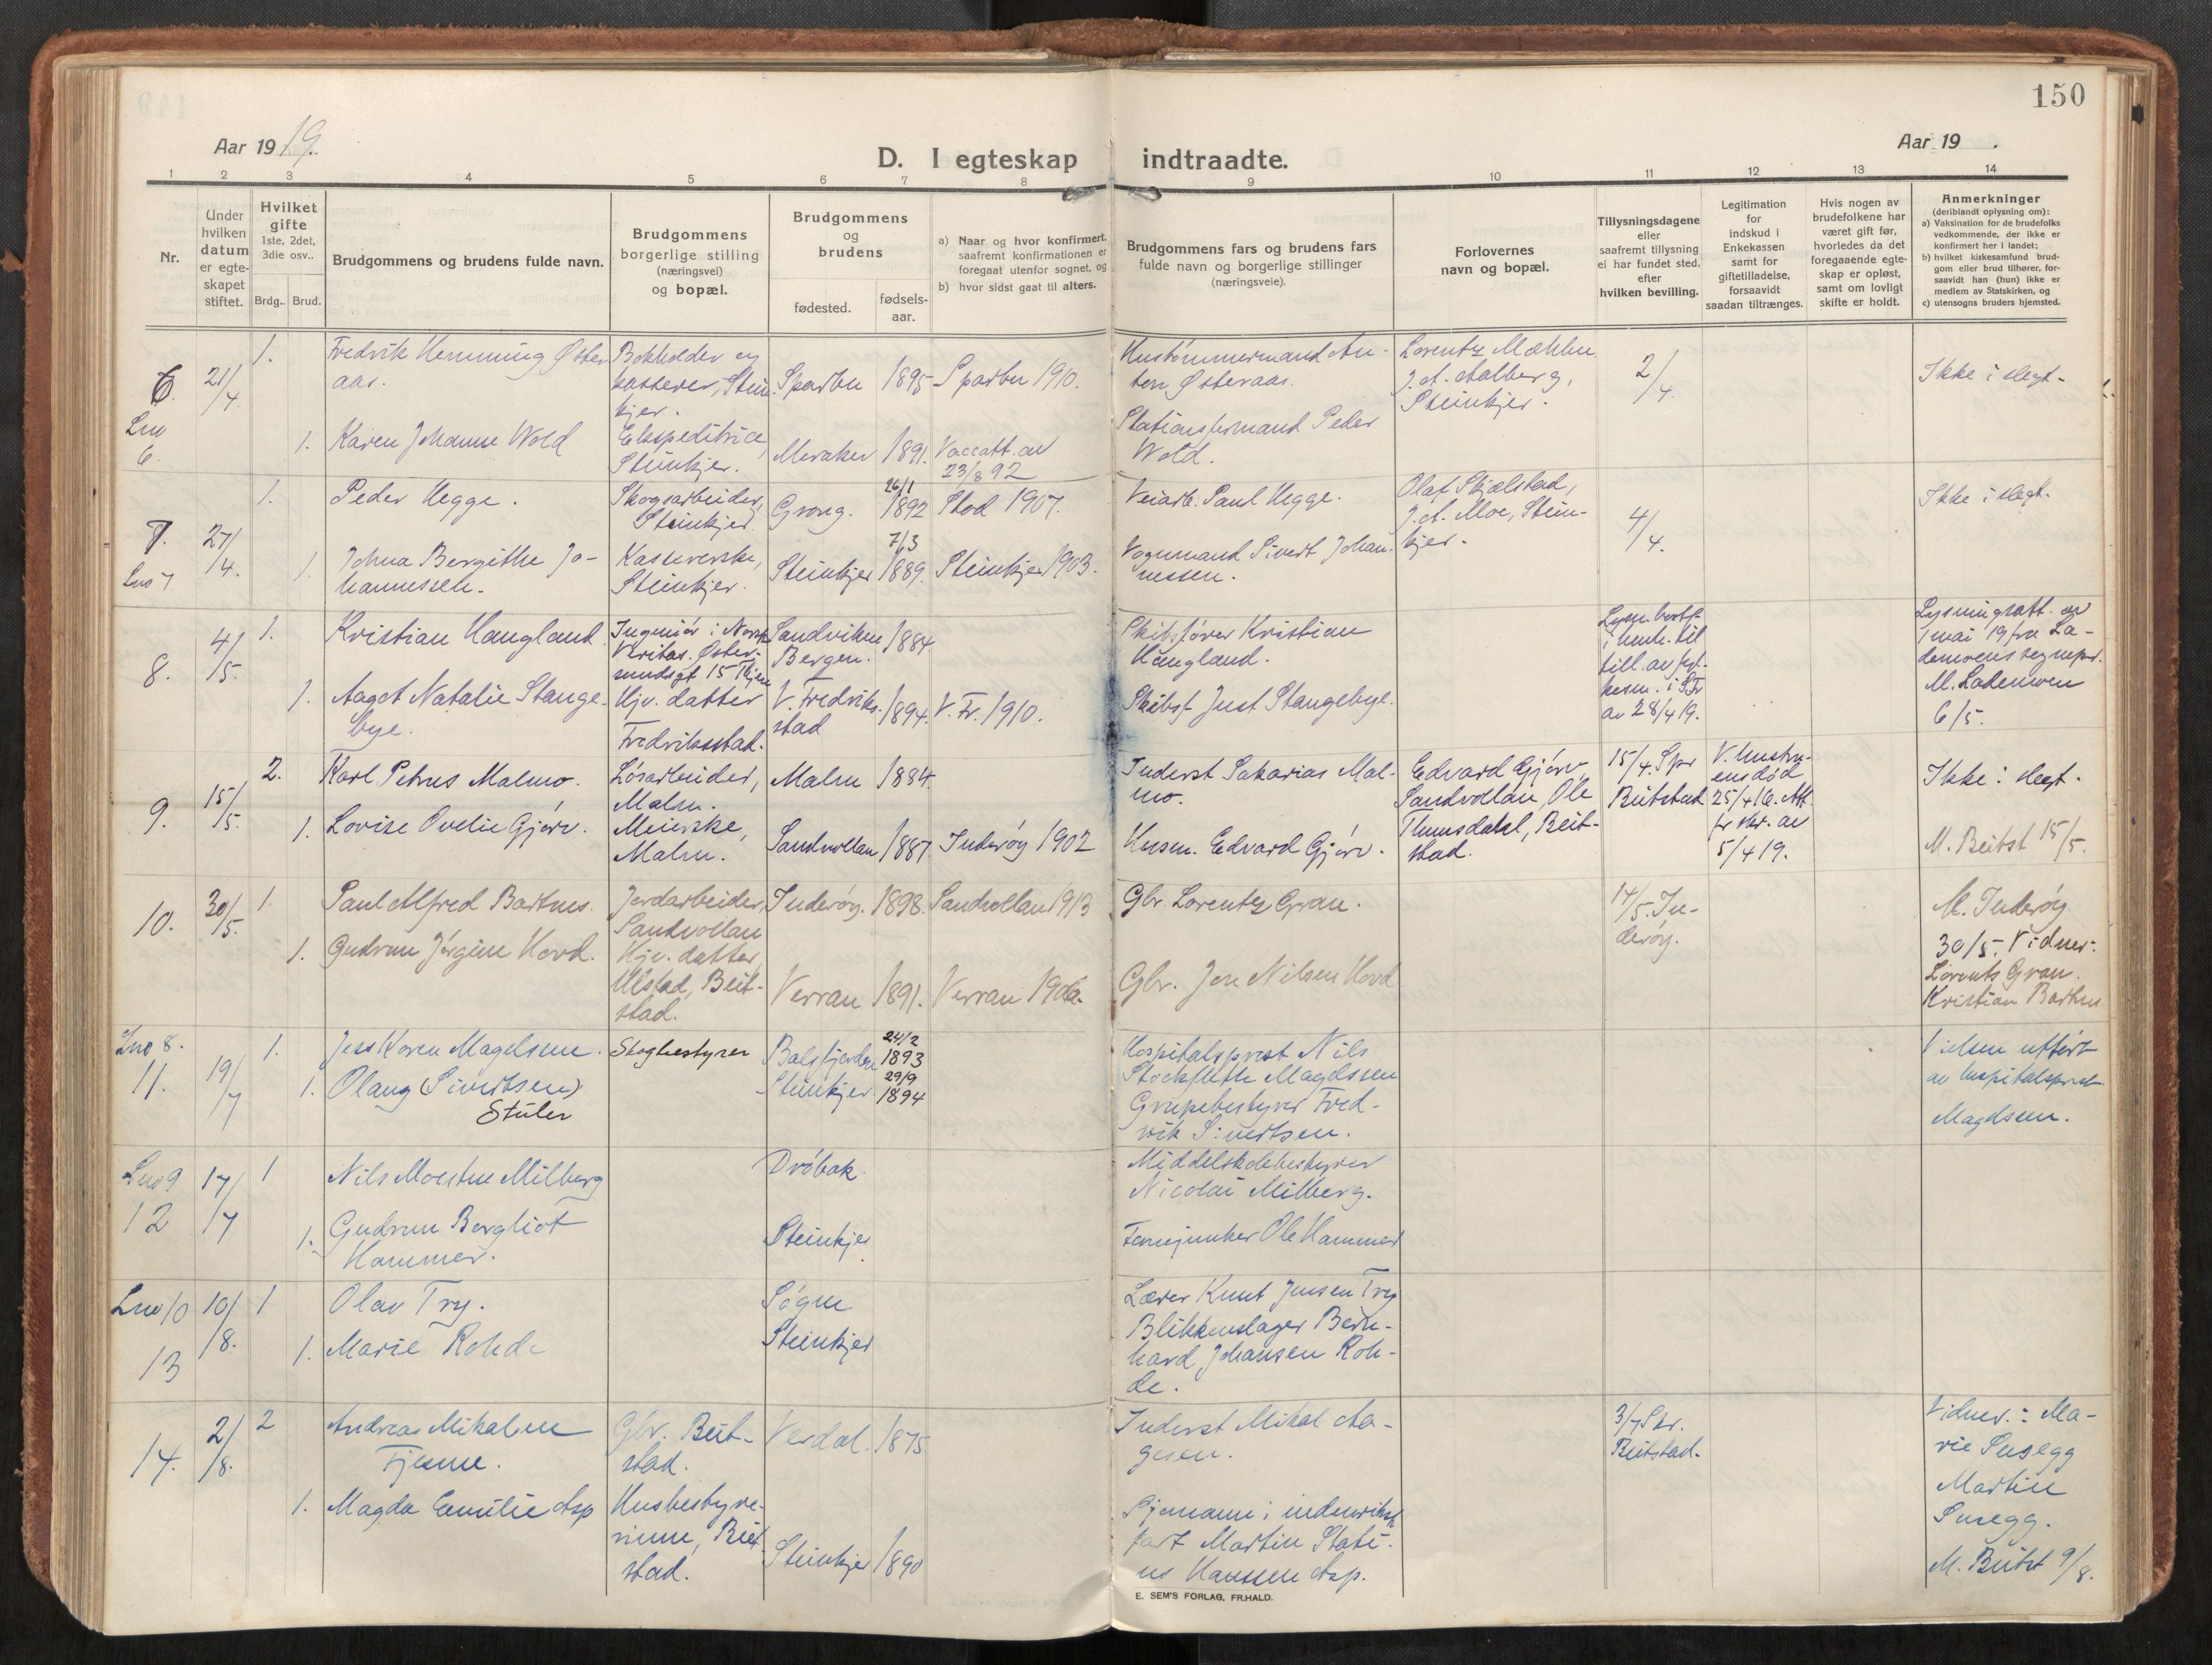 150
Aar 1919.
D. I egteskap indtraadte.
Aar 19 .
1 2 3 4 5 6 7 8 9 10 11 12 13 14
Nr.
Under hvilken datum er egteskapet stiftet.
Hvilket gifte 1ste, 2det, 3die osv..
Brdg.. Brud.
Brudgommens og brudens fulde navn.
Brudgommens borgerlige stilling (næringsvei) og bopæl.
Brudgommens og brudens
fødested. fødsels-aar.
a) Naar og hvor konfirmert, saafremt konfirmationen er foregaat utenfor sognet, og
b) hvor sidst gaat til alters.
Brudgommens fars og brudens fars fulde navn og borgerlige stillinger (næringsveie).
Forlovernes navn og bopæl.
Tillysningsdagene eller saafremt tillysning ei har fundet sted, efter hvilken bevilling.
Legitimation for indskud i Enkekassen samt for giftetilladelse, forsaavidt saadan tiltrænges.
Hvis nogen av brudefolkene har været gift før, hvorledes da det foregaaende egteskap er opløst, samt om lovligt skifte er holdt.
Anmerkninger (deriblandt oplysning om):
a) Vaksination for de brudefolks vedkommende, der ikke er konfirmert her i landet;
b) hvilket kirkesamfund brudgom eller brud tilhører, forsaavidt han (hun) ikke er medlem av Statskirken, og
c) utensogns bruders hjemsted.
6. Lno 6. 21/4 1. Fredrik Hemming Østeraas. Bokholder og kasserer, Steinkjer. Sparbu 1895 Sparbu 1910. Hustømmermand Anton Østeraas. Lorentz Mækhn J. A. Aalberg, Steinkjer. 2/4. Ikke i slegt.
1. Karen Johanne Wold Ekspeditrice, Steinkjer. Meraker 1891. Vaccatt. av 23/8 92 Stationsformand Peder Wold.
7. Lno 7 27/4. 1. Peder Hegge. Skogsarbeider, Steinkjer. Grong. 26/1 1892 Stod 1907. Veiarb. Paul Hegge. Olaf Skjelstad, J. A. Moe, Steinkjer. 4/4. Ikke i slegt.
1. Johna Bergithe Johannessen. Kassererske, Steinkjer. Steinkjer 7/3 1889. Steinkjer 1903. Vognmand Sivert Johannessen.
8. 4/5. 1. Kristian Haugland. Ingeniør i Norsk Veritas. Østersundsgt 15 Sandviken Bergen. 1884 Skibsfører Kristian Haugland. Lysn. i henh. til till. av 28/4 19. Lysningsatt. av 1 mai 19 fra Lademoens sognepr. M. Lademoen 6/5.
1. Aagot Natalie Stangebye. Hjv. datter Fredriksstad. V. Fredriksstad 1894. V. Fr. 1910. Skibsf Just Stangebye.
9. 15/5. 2. Karl Petrus Malmo. Løsarbeider, Malm. Malm 1884. Inderst Sakarias Malmo. Edvard Gjørv Sandvollan, Ole Beitstad. 15/4. Spr Beitstad V. hustruens død 25/4 16. Att. fr skr. av 5/4 19. Ikke i slegt.
1. Lovise Ovelie Gjørv. Meierske, Malm. Sandvollan 1887. Inderøy 1902 Husm. Edvard Gjørv. M. Beitst 15/5.
10. 30/5. 1. Paul Alfred Bartnes. Jordarbeider, Sandvollan Inderøy. 1898. Sandvollan 1913 Gbr. Lorentz Gran. 14/5. Inderøy. M. Inderøy 30/5. Vidner: Lorents Gran. Kristian Bartnes
1. Gudrun Jørgine Hovd. Hjv. datter, Ulstad, Beitstad. Verran 1891. Verran 1906. Gbr. Jon Nilsen Hovd
Lno 8. 11. 19/7 1. Jess Koren Magelssen. Skogbestyrer Balsfjorden 24/2 1893 Hospitalsprest Nils Stockfleth Magelssen Vielsen utført av hospitalsprest Magelssen.
1. Olaug (Sivertsen) Stuler Steinkjer. 29/9 1894 Grupebestyrer Fredrik Sivertsen.
Lno 9 12 17/7 1 Nils Moestue Milberg Drøbak. Middelskolebestyrer Nicolai Milberg.
1. Gudrun Bergliot Hammer. Steinkjer Fanejunker Ole Hammer
Lno 10 13 10/8. 1 Olav Try. Søgne Lærer Knut Jensen Try
1. Marie Rohde Steinkjer Blikkenslager Bernhard Johansen Rohde.
14. 2/8. 2 Andreas Mikalsen Fjesme. Gbr. Beitstad. Verdal. 1875 Inderst Mikal Aagesen. 3/7 Skr. Beitstad. Vidner: Marie Susegg Martin Susegg. M. Beitst 9/8.
1. Magda Emilie Asp Husbestyrerinne, Beitstad. Steinkjer 1890 Sjømann i indenriksk fart Martin Statius Hanssen Asp.
E. SEM'S FORLAG, FR.HALD.